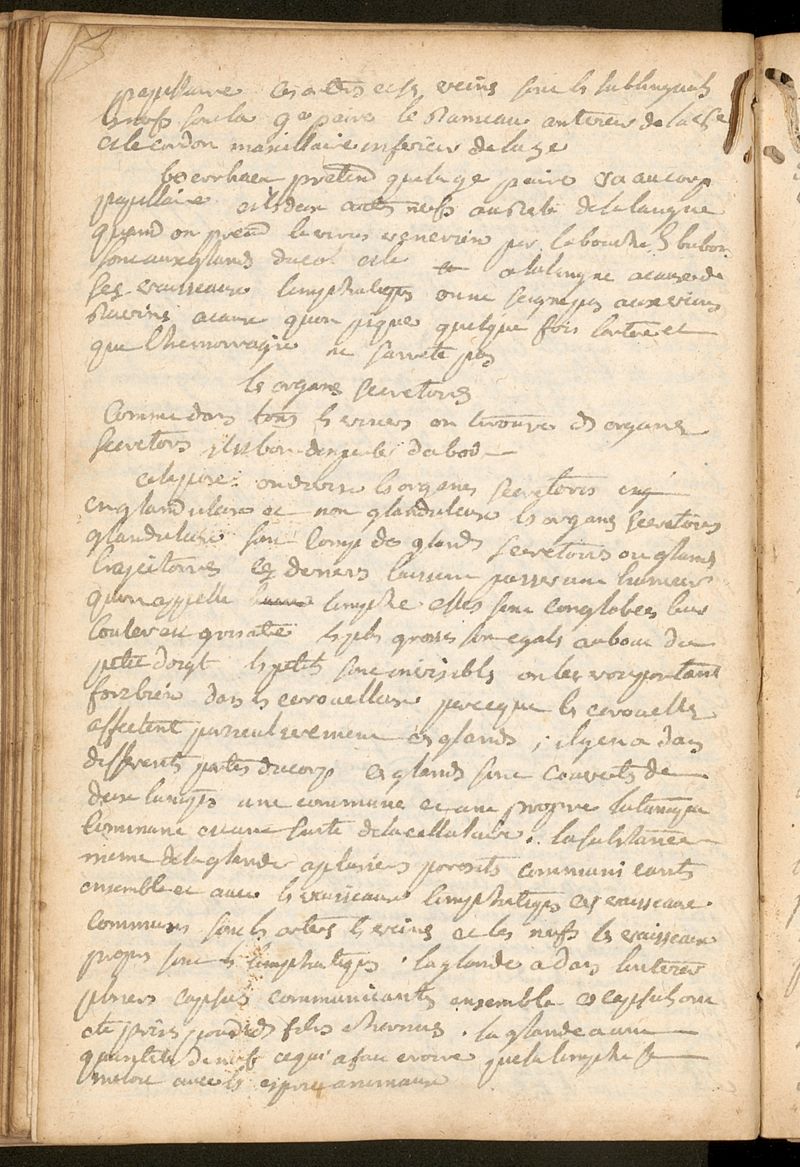 papillaire ces arteres et ses veines sont les sublinguals
les nerfs sont la 9e paire le Rameau anterieur de la
et le cordon maxillaire inferieur de la 5e
boerrhaen pretend que la 9e paire va au corp
papillaire et les deux autres nerfs au reste de la langue
quand on prend le virus venerien par la bouche les bubon
sont aux glands du col et a la langue a cause de
ses vaisseaux limphatiques on ne seigne pas aux veines
Ravines a cause quon pique quelque fois lartere et
que lhemorragie ne sarrete pas
les organes secretoires
Comme dans tous les visceres on trouve des organes
secretoirs il est bon den parler dabord
on divise les organes secretoires en
englanduleux et non glanduleux les organes secretoires
glanduleux sont Comp de glands secretoires ou glands
ces derniers laissent passer une humeur
quon appelle limphe elles sont conglobees leur
Couleur est grisatre les plus grosses sont egals au bout du
petit doigt les petits sont invisibles on les voit pourtant
forbien dans les ecrouelleux parceque les ecrouelles
affectent particulierement ces glands ; il y en a dans
differents partes du corp ces glands sont couverts de
deux tuniqs une commune et une propre la tunique
Commune est une suite de la cellulaire . la substance
meme de la glande a plusieurs porosites communicants
ensemble et avec les vaisseaux limphatiqs ces vaisseaux
communs sont les arteres les veines et les nerfs les vaisseaux
propres sont les limphatiqs . la glande a dans linterieur
plusieurs capsules communicantes ensemble ces capsules ont
ete prises pour des fibres charnues . la glande a une
quantite de nerfs ce qui a fait croire que la limphe se
meloit avec les esprits animaux